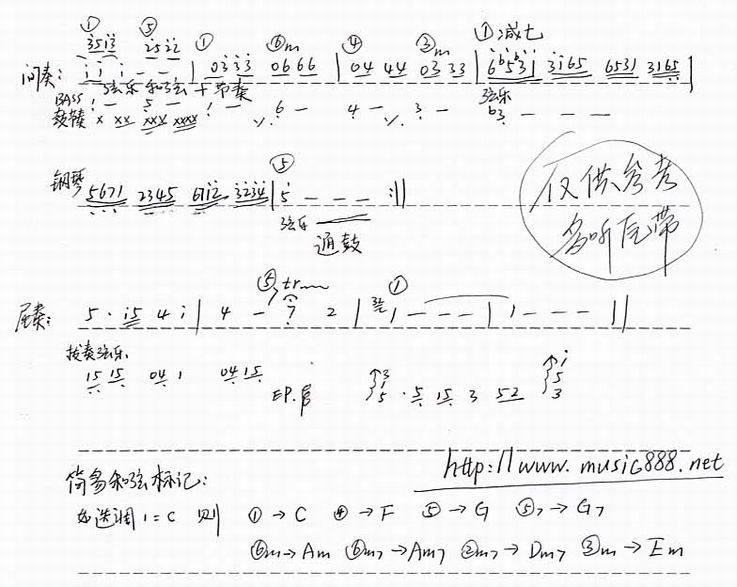 ① ⑤ ① ⑥m ④ ③m ①减七
3513 2512
间奏: i i i - - | 0333 0666 | 04 44 03 33 | 6b5b31 3165 6531 3165 |
弦乐和弦十节奏 弦乐
BASS 1 - 5 - 1 - 6 - 4 - 3 - b3 - - -
鼓镲 x xx xxx xxxx
⑤
钢琴 5671 2345 6712 3234 | 5 - - - :||
弦乐 通鼓
仅供参考
多听原带
⑤7 tr ①
尾奏: 5 · i5 4 i | 4 - 7 2 | 1 - - - | 1 - - - ||
拨奏弦乐
15 15 04 1 04 15
EP.
5 · 5 15 3 52
http://www.music888.net
简易和弦标记:
如选调1=C 则 ①→C ④→F ⑤→G ⑤7→G7
⑥m→Am ⑥m7→Am7 ②m7→Dm7 ③m→Em